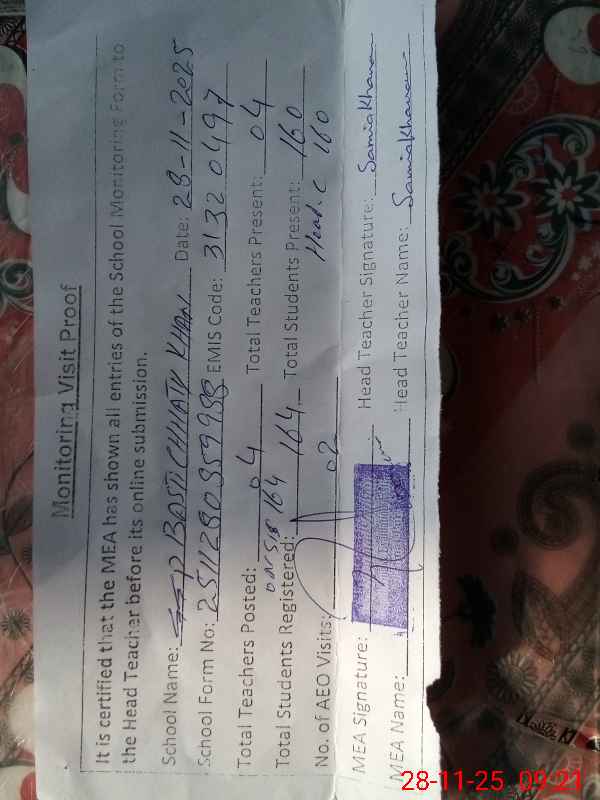 Monitoring Visit Proof
It is certified that the MEA has shown all entries of the School Monitoring Form to
the Head Teacher before its online submission.
School Name: BASTI CHHATU KHAN Date: 28-11-2025
School Form No: EMIS Code: 31320497
Total Teachers Posted: 04 Total Teachers Present: 04
on SIS 164
Total Students Registered: 164 Total Students Present: 160
Head.C 160
No. of AEO Visits: 02
MEA Signature: Head Teacher Signature: Samia Khanam
MEA Name: Head Teacher Name: Samia Khanam
28-11-25 09:21